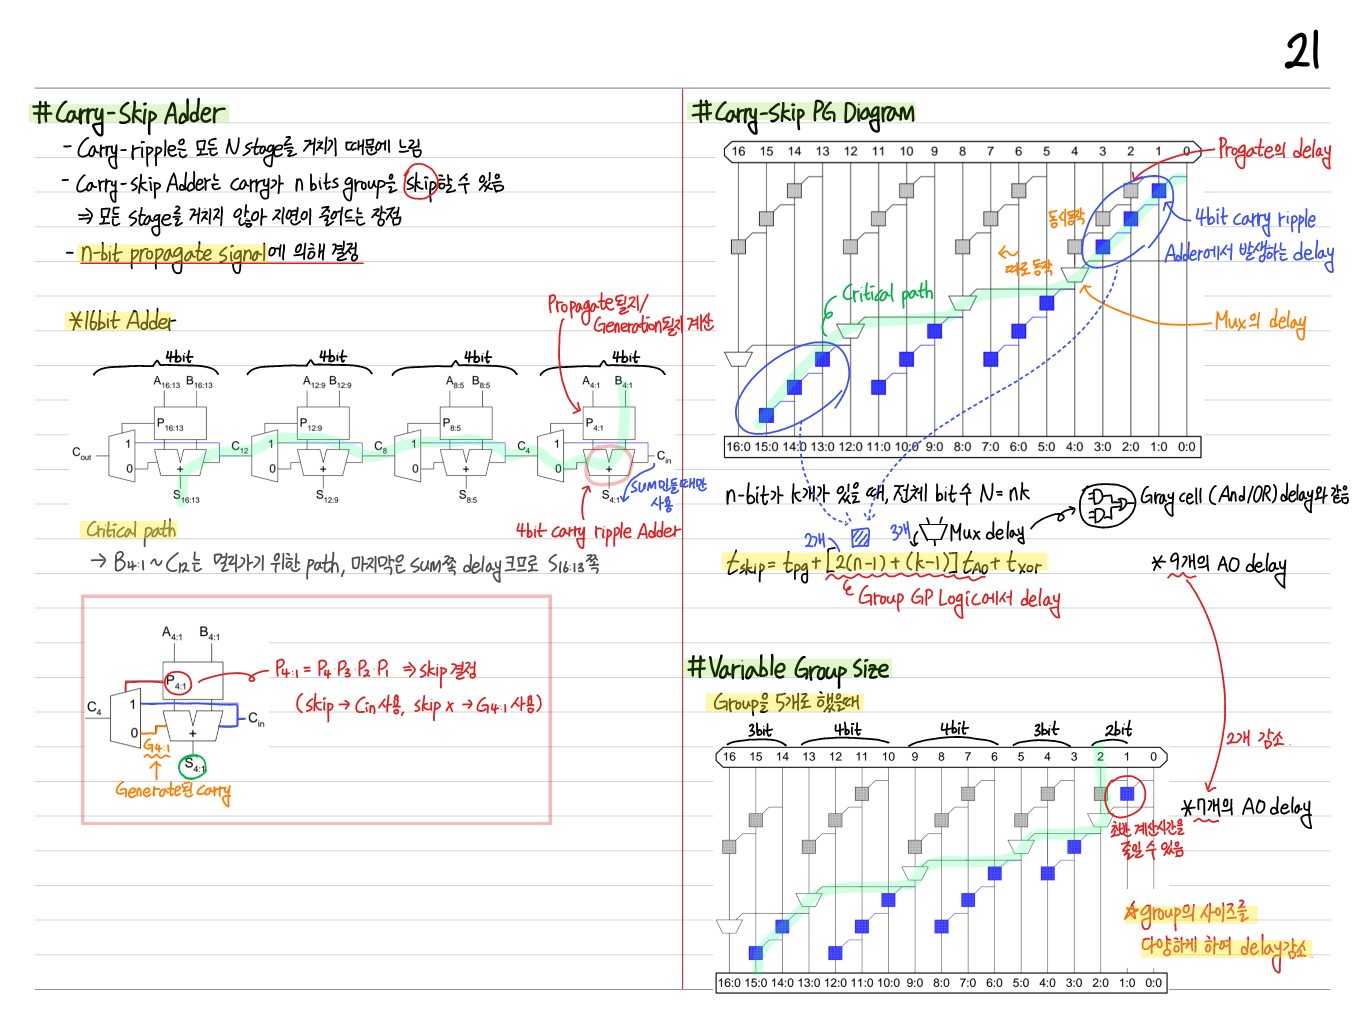 21
#Carry-Skip Adder
- Carry-ripple은 모든 N stage를 거치기 때문에 느림
- Carry-skip Adder는 carry가 n bits group을 skip할 수 있음
⇒ 모든 stage를 거치지 않아 지연이 줄어드는 장점
- n-bit propagate signal에 의해 결정
*16bit Adder
Propagate될지/
Generation될지 계산
4bit 4bit 4bit 4bit
A16:13 B16:13 A12:9 B12:9 A8:5 B8:5 A4:1 B4:1
P16:13 P12:9 P8:5 P4:1
Cout 1 0 + C12 1 0 + C8 1 0 + C4 1 0 + Cin
S16:13 S12:9 S8:5 S4:1
sum만들때만
사용
4bit carry ripple Adder
Critical path
→ B4:1 ~ C12는 멀리가기 위한 path, 마지막은 sum쪽 delay 크므로 S16:13쪽
A4:1 B4:1
P4:1
C4 1 0 + Cin
G4:1
S4:1
Generate된 carry
P4:1 = P4·P3·P2·P1 ⇒ skip 결정
(skip → Cin 사용, skip x → G4:1 사용)
#Carry-Skip PG Diagram
16 15 14 13 12 11 10 9 8 7 6 5 4 3 2 1 0
Progate의 delay
동시동작
4bit carry ripple
Adder에서 발생하는 delay
따로 동작
Critical path
Mux의 delay
16:0 15:0 14:0 13:0 12:0 11:0 10:0 9:0 8:0 7:0 6:0 5:0 4:0 3:0 2:0 1:0 0:0
n-bit가 k개가 있을 때, 전체 bit수 N = nk
Gray cell (And/OR) delay와 같음
2개 3개 Mux delay
tskip = tpg + [2(n-1) + (k-1)] tAO + txor
*9개의 AO delay
Group GP Logic에서 delay
#Variable Group Size
Group을 5개로 했을때
3bit 4bit 4bit 3bit 2bit
16 15 14 13 12 11 10 9 8 7 6 5 4 3 2 1 0
2개 감소.
*7개의 AO delay
초반 계산시간을
줄일 수 있음
☆group의 사이즈를
다양하게 하여 delay감소.
16:0 15:0 14:0 13:0 12:0 11:0 10:0 9:0 8:0 7:0 6:0 5:0 4:0 3:0 2:0 1:0 0:0